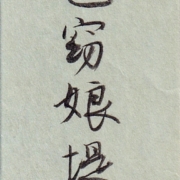 窈娘堤